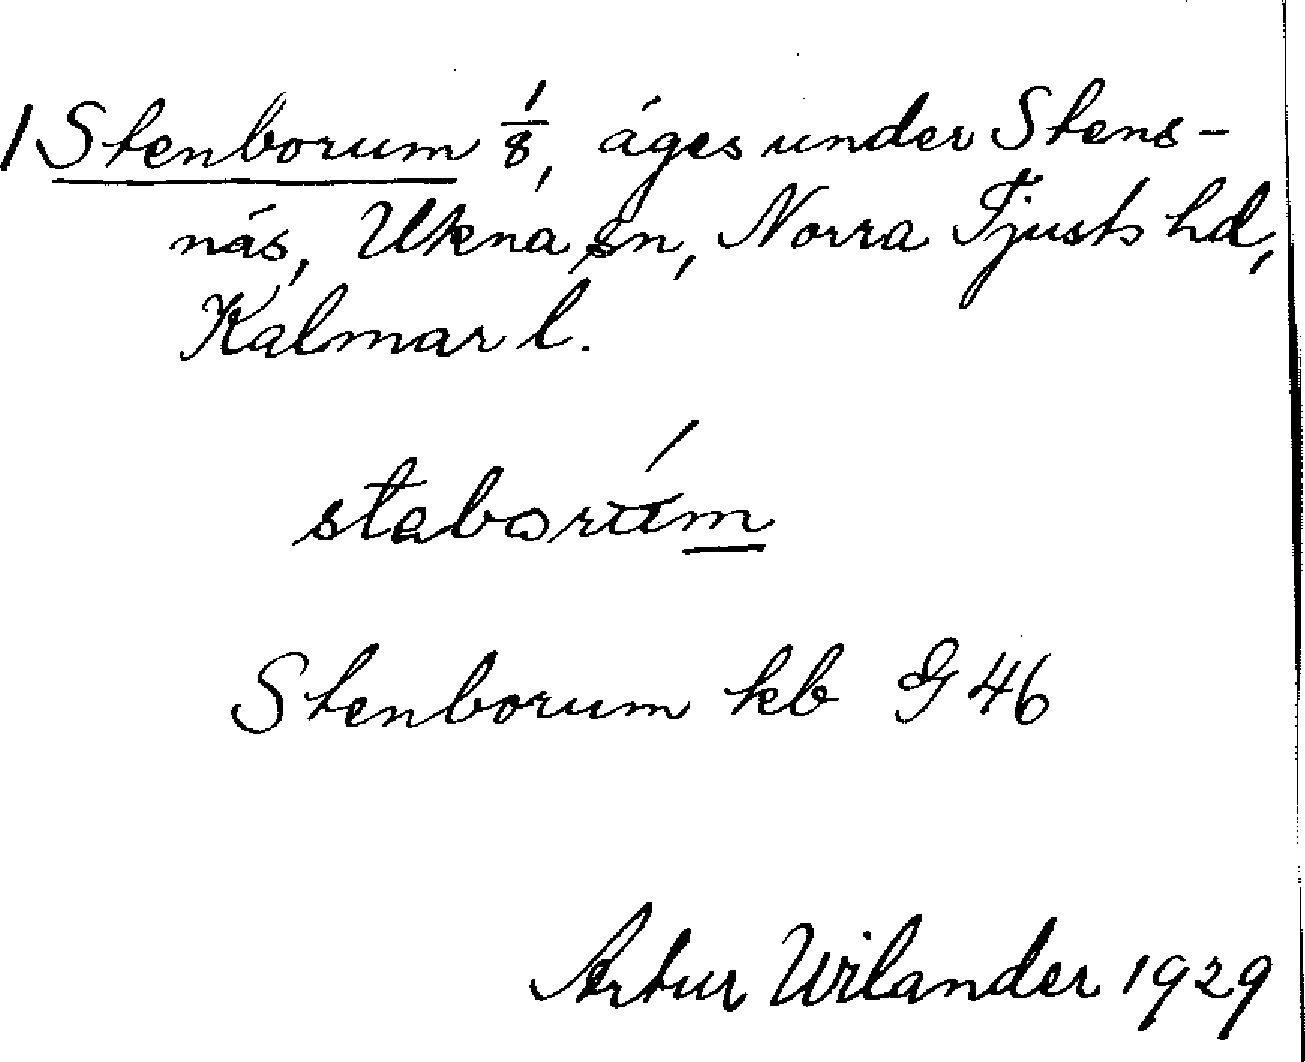 1 Stenborum 1/8, äges under Stens-
näs, Ukna sn, Norra Tjusts hd,
Kalmar l.
staborúm
Stenborum kb G 46
Artur Wilander 1929